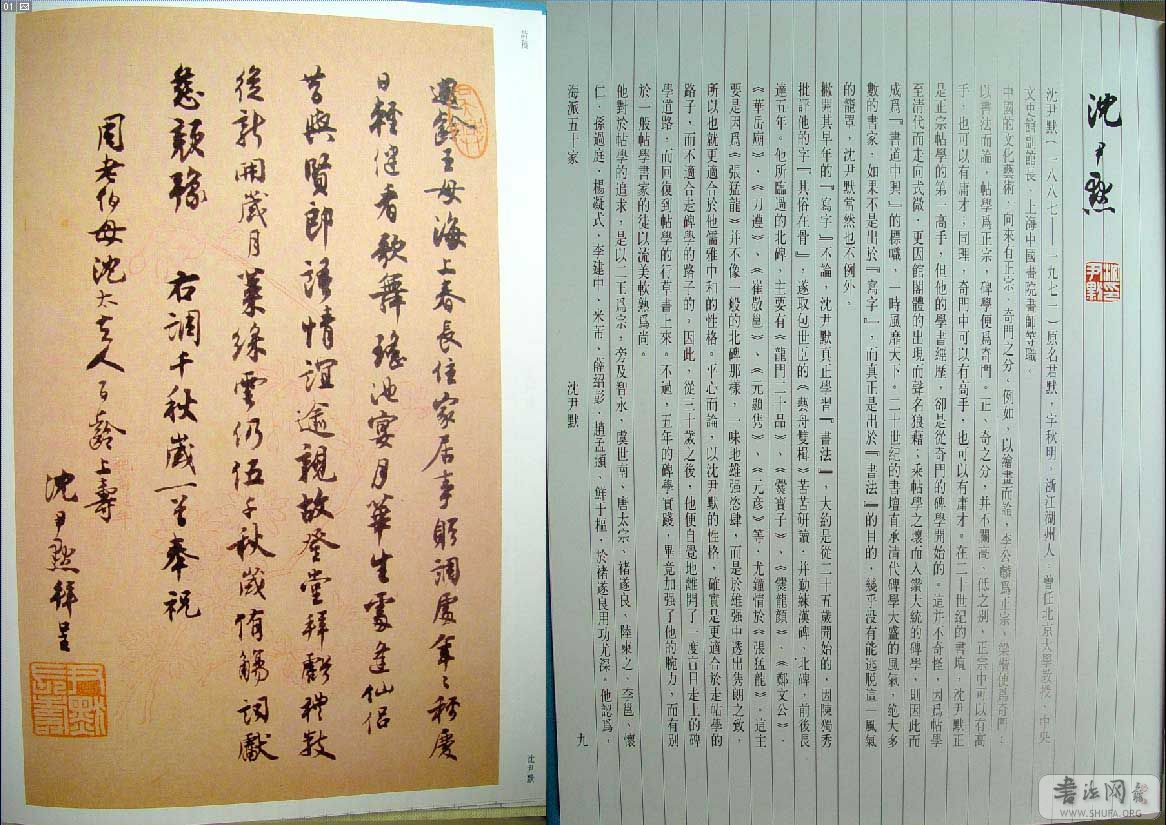 沈尹默
沈尹默(一八八七——一九七一)原名君默,字秋明,浙江湖州人,曾任北京大學教授、中央
文史館副館長、上海中國書院書師等職。
中國的文化藝術,向來有正宗、奇門之分,例如,以繪畫而論,李公麟爲正宗,梁楷便爲奇門;
以書法而論,帖學爲正宗,碑學便爲奇門。正、奇之分,并不關高、低之別,正宗中可以有高
手,也可以有庸才,同理,奇門中可以有高手,也可以有庸才。在二十世紀的書壇,沈尹默正
是正宗帖學的第一高手,但他的學書經歷,卻是從奇門的碑學開始的。這并不奇怪,因爲帖學
至清代而走向式微,更因館閣體的出現而聲名狼藉;乘帖學之壞而入纘大統的碑學,則因此而
成爲『書道中興』的標幟,一時風靡天下。二十世紀的書壇直承清代碑學大盛的風氣,絶大多
數的書家,如果不是出於『寫字』,而真正是出於『書法』的目的,幾乎没有能逃脱這一風氣
的籠罩,沈尹默當然也不例外。
撇開其早年的『寫字』不論,沈尹默真正學習『書法』,大約是從二十五歲開始的,因陳獨秀
批評他的字『其俗在骨』,遂取包世臣的《藝舟雙楫》苦苦研讀,并勤練漢碑、北碑,前後長
達五年。他所臨過的北碑,主要有《龍門二十品》、《爨寶子》、《爨龍顔》、《鄭文公》、
《華岳廟》、《刁遵》、《崔敬邕》、《元顯雋》、《元彦》等,尤鍾情於《張猛龍》,這主
要是因爲《張猛龍》并不像一般的北碑那樣,一味地雄强恣肆,而是於雄强中透出雋朗之致,
所以也就更適合於他儒雅中和的性格。平心而論,以沈尹默的性格,確實是更適合於走帖學的
路子,而不適合走碑學的路子的,因此,從三十歲之後,他便自覺地離開了一度盲目走上的碑
學道路,而回復到帖學的行草書上來。不過,五年的碑學實踐,畢竟加强了他的腕力,而有别
於一般帖學書家的徒以流美軟熟爲尚。
他對於帖學的追求,是以二王爲宗,旁及智永、虞世南、唐太宗、褚遂良、陸柬之、李邕、懷
仁、孫過庭、楊凝式、李建中、米芾、薛紹彭、趙孟頫、鮮于樞,於褚遂良用功尤深。他認爲,
海派五十家
沈尹默
九
詩稿
王母海上春長住家居事順調處年年稱慶
日輕健看歌舞瑤池宴月華生處逢仙侶
昔與賢郎語情誼逾親故登堂拜獻禮數
從新開歲月雲仍伍千秋歲侑觴詞獻
慈顏豫 右調千秋歲一首奉祝
周老伯母沈太夫人百齡上壽
沈尹默拜呈
沈尹默
01
书法网
WWW.SHUFA.ORG